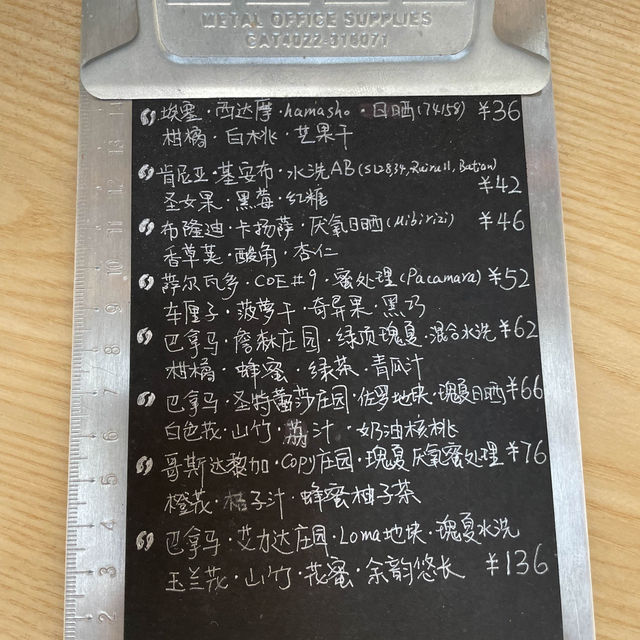 METAL OFFICE SUPPLIES
CAT4022-316071
埃塞·西达摩·hamasho·日晒(74158) ¥36
柑橘·白桃·芒果干
肯尼亚·基安布·水洗AB(SL28,34,Ruiru11,Batian)
¥42
圣女果·黑莓·红糖
布隆迪·卡扬萨·厌氧日晒(Mibirizi) ¥46
香草荚·酸角·杏仁
萨尔瓦多·COE#9·蜜处理(Pacamara) ¥52
车厘子·菠萝干·奇异果·黑巧
巴拿马·詹森庄园·绿顶瑰夏·混合水洗 ¥62
柑橘·蜂蜜·绿茶·青瓜汁
巴拿马·圣特蕾莎庄园·佐罗地块·瑰夏日晒 ¥66
白色花·山竹·荔汁·奶油核桃
哥斯达黎加·Copy庄园·瑰夏厌氧蜜处理 ¥76
橙花·桔子汁·蜂蜜柚子茶
巴拿马·艾力达庄园·Loma地块·瑰夏水洗
玉兰花·山竹·花蜜·余韵悠长 ¥136
13
12
11
10
9
8
7
6
5
4
3
2